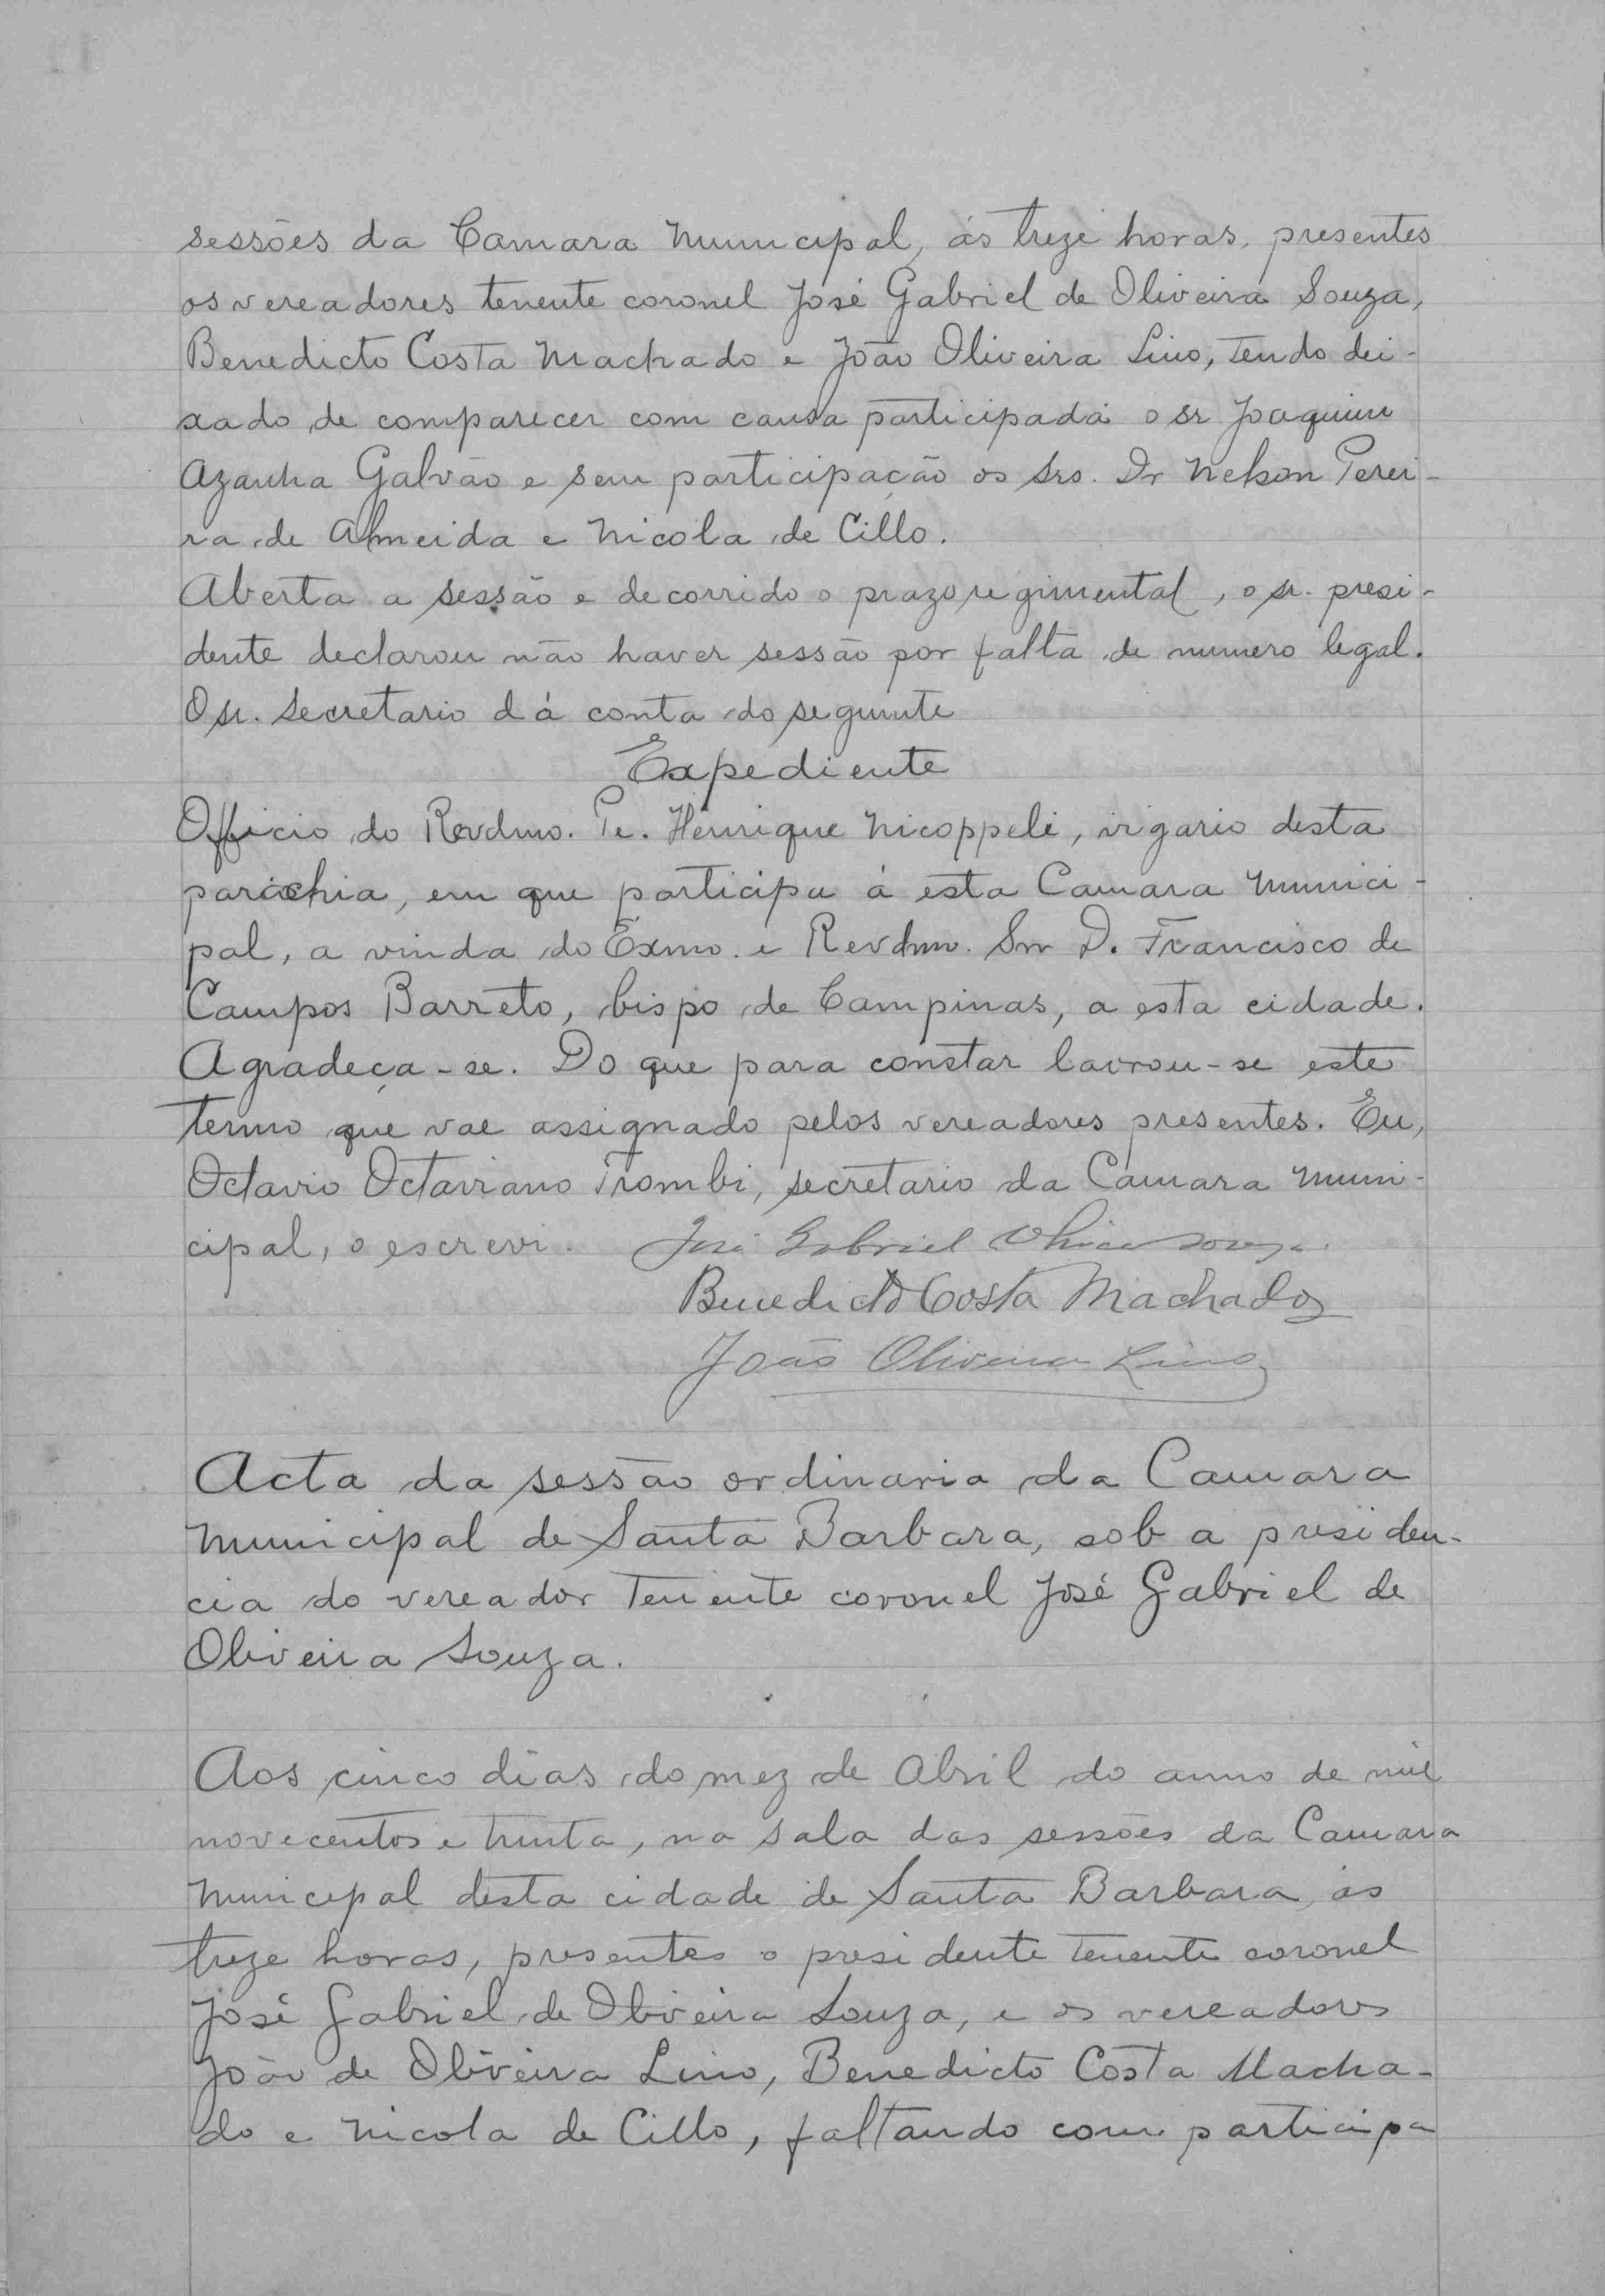 sessões da Camara Municipal, ás treze horas, presentes
os vereadores tenente coronel José Gabriel de Oliveira Souza,
Benedicto Costa Machado e João Oliveira Lino, tendo dei-
xado de comparecer com causa participada o sr Joaquim
Azanha Galvão e sem participação os srs. Dr Nelson Perei-
ra de Almeida e Nicola de Cillo.
Aberta a sessão e decorrido o prazo regimental, o sr. presi-
dente declarou não haver sessão por falta de numero legal.
O sr. Secretario dá conta do seguinte
Expediente
Officio do Revdmo. Pe. Henrique Nicoppeli, vigario desta
parochia, em que participa á esta Camara Munici-
pal, a vinda do Exmo. e Revdmo. Snr D. Francisco de
Campos Barreto, bispo de Campinas, a esta cidade.
Agradeça-se. Do que para constar lavrou-se este
termo que vae assignado pelos vereadores presentes. Eu,
Octavio Octaviano Trombi, secretario da Camara Muni-
cipal, o escrevi. José Gabriel Oliveira Souza
Benedicto Costa Machado
João Oliveira Lino
Acta da sessão ordinaria da Camara
Municipal de Santa Barbara, sob a presiden-
cia do vereador Tenente coronel José Gabriel de
Oliveira Souza.
Aos cinco dias do mez de Abril do anno de mil
novecentos e trinta, na sala das sessões da Camara
Municipal desta cidade de Santa Barbara, ás
treze horas, presentes o presidente tenente coronel
José Gabriel de Oliveira Souza, e os vereadores
João de Oliveira Lino, Benedicto Costa Macha-
do e Nicola de Cillo, faltando com participa